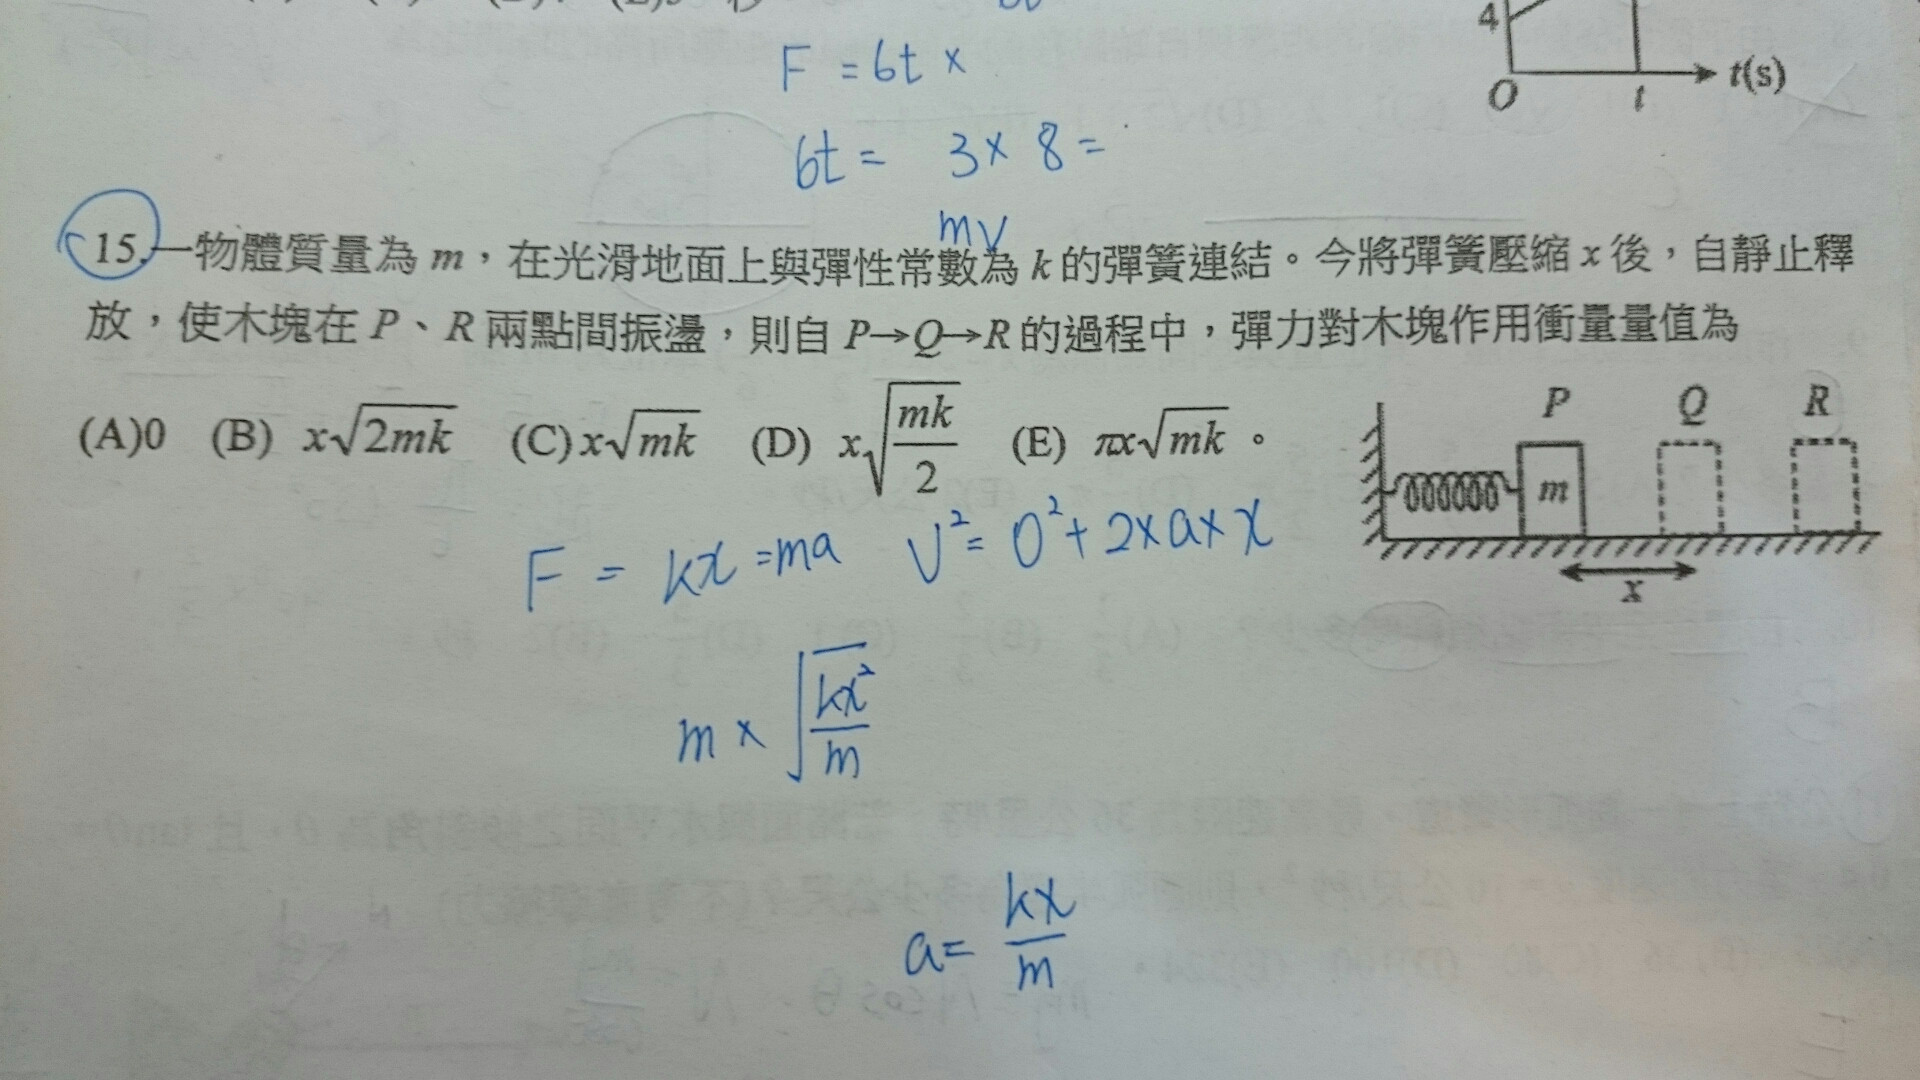 4
F = 6t ×
t(s)
O
t
6t = 3 × 8 =
mv
15.一物體質量為 m，在光滑地面上與彈性常數為 k 的彈簧連結。今將彈簧壓縮 x 後，自靜止釋
放，使木塊在 P、R 兩點間振盪，則自 P→Q→R 的過程中，彈力對木塊作用衝量量值為
(A)0 (B) x√2mk (C) x√mk (D) x√(mk/2) (E) πx√mk 。
P Q R
m
x
F = kx = ma V² = 0² + 2×a×x
m × √(kx²/m)
a = kx/m